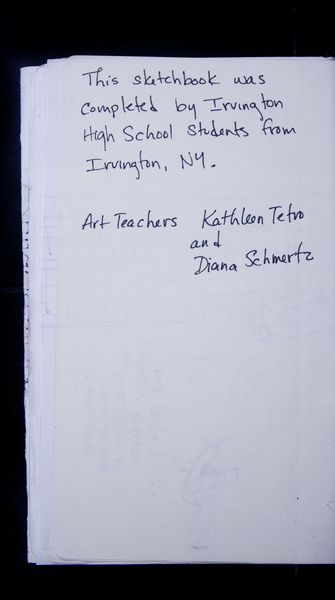 This sketchbook was
completed by Irvington
High School Students from
Irvington, NY.
Art Teachers Kathleen Tetro
and
Diana Schmertz